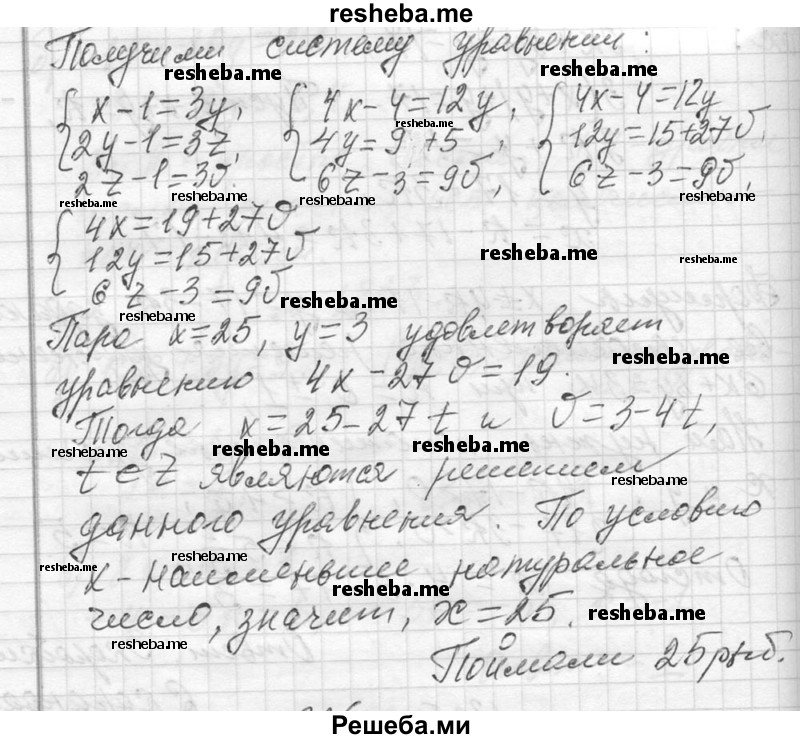 resheba.me
Получили систему уравнений:
resheba.me resheba.me
x-1=3y, 4x-4=12y, 4x-4=12y
resheba.me
2y-1=3z, 4y=9 +5, 12y=15+27б,
2z-1=3б. 6z-3=9б, 6z-3=9б,
resheba.me resheba.me resheba.me resheba.me
4x=19+27б
12y=15+27б
resheba.me resheba.me
6z-3=9б
resheba.me resheba.me
Пара x=25, y=3 удовлетворяет
resheba.me
уравнению 4x-27б=19.
Тогда x=25-27t и б=3-4t,
resheba.me resheba.me resheba.me
t∈Z являются решением
resheba.me
данного уравнения. По условию
resheba.me resheba.me
x-наименьшее натуральное
resheba.me
число, значит, x=25.
resheba.me resheba.me
Поймали 25 рыб.
Решеба.ми